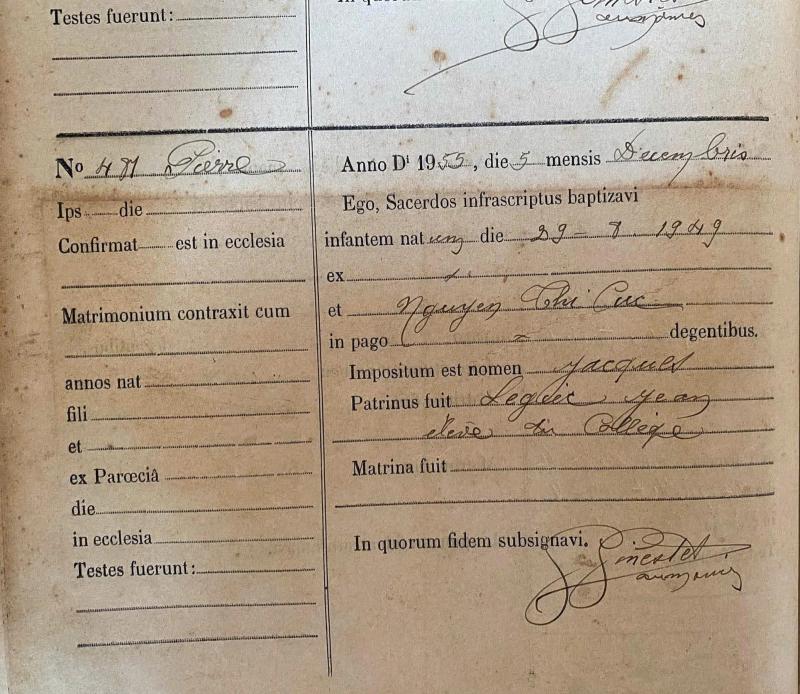 Testes fuerunt:
In quorum
Nº 471 Pierre
Ips die
Confirmat est in ecclesia
Matrimonium contraxit cum
annos nat
fili
et
ex Parœciâ
die
in ecclesia
Testes fuerunt:
Anno Dⁱ 1955, die 5 mensis Decembris
Ego, Sacerdos infrascriptus baptizavi
infantem nat um die 29 - 8 1949
ex
et Nguyen Thi Cuc
in pago degentibus.
Impositum est nomen Jacques
Patrinus fuit Leguic Jean
élève du Collège
Matrina fuit
In quorum fidem subsignavi.
Ginestet